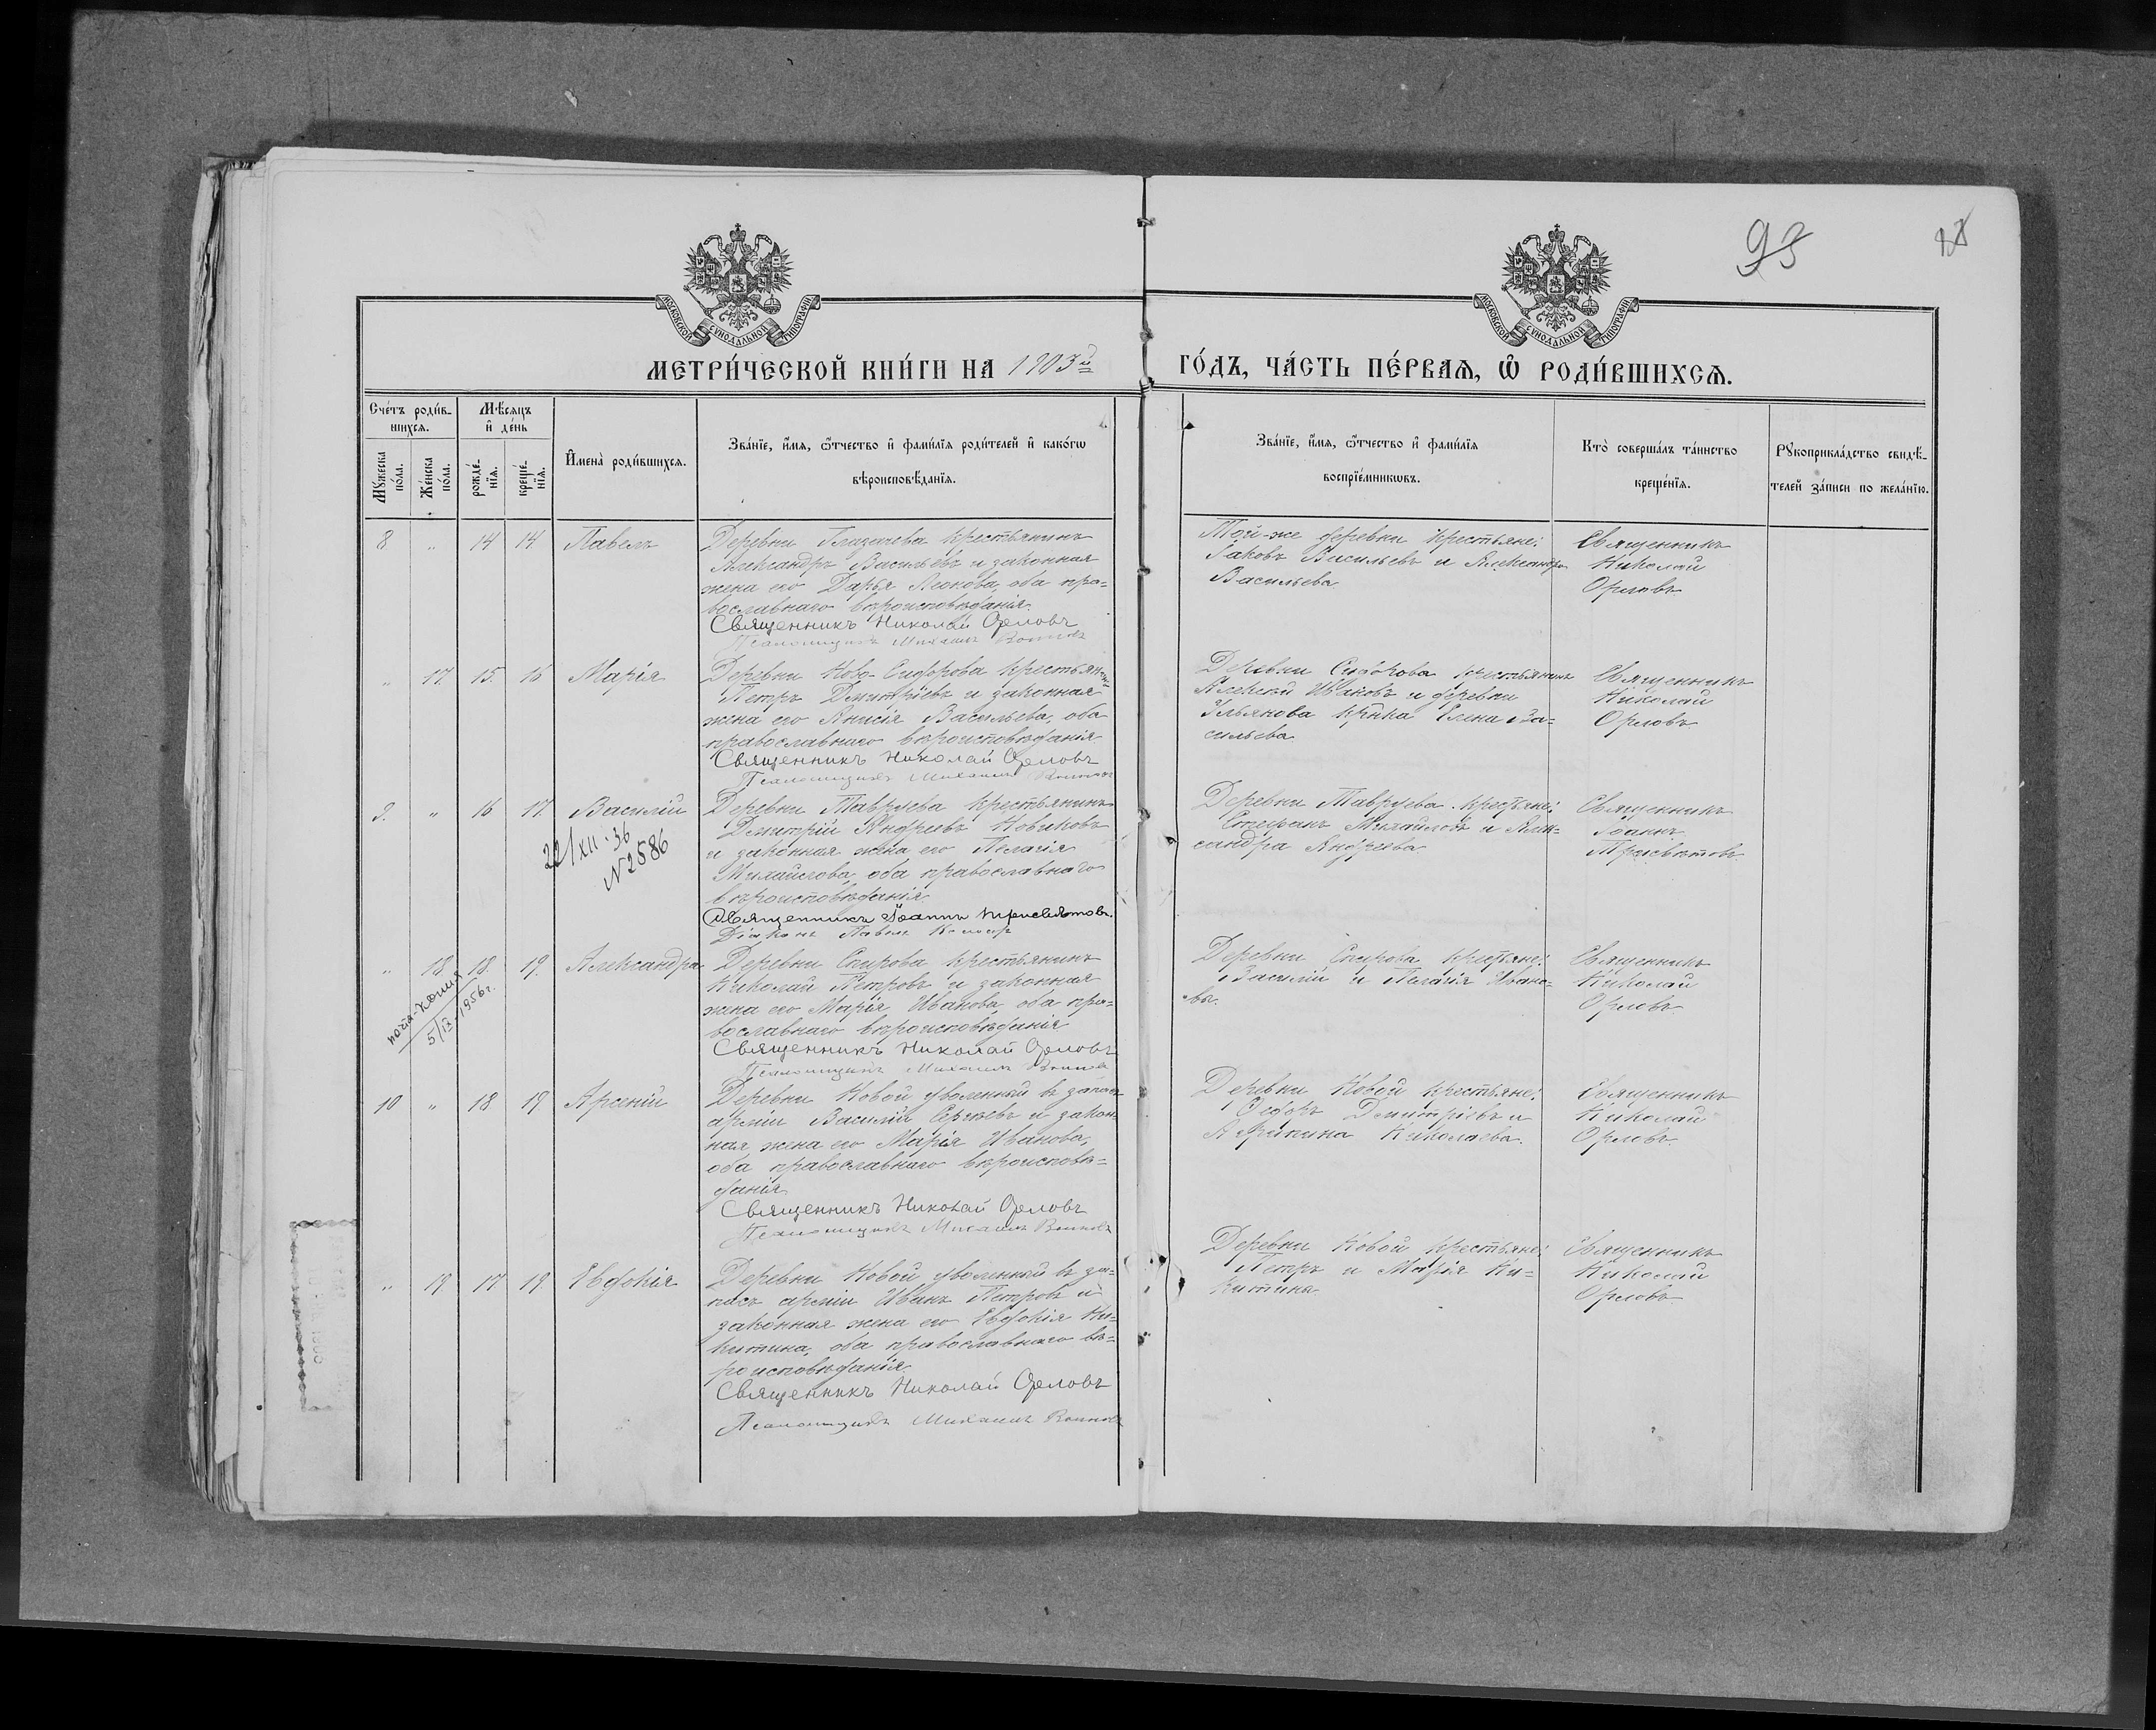 93
МОСКОВСКОЙ СѴНОДАЛЬНОЙ ТИПОГРАФІИ
МОСКОВСКОЙ СѴНОДАЛЬНОЙ ТИПОГРАФІИ
МЕТРИ́ЧЕСКОЙ КНИ́ГИ НА 1903й
ГО́ДЪ, ЧА́СТЬ ПЕ́РВАѦ, Ѡ҆ РОДИ́ВШИХСѦ.
Сче́тъ роди́в-
шихсѧ.
Мꙋ́жеска по́ла.
Же́нска по́ла.
Мѣ́сѧцъ и҆ де́нь
рожде́-нїѧ.
креще́-нїѧ.
И҆мена̀ роди́вшихсѧ.
Зва́нїе, и҆́мѧ, ѻ҆́тчество и҆ фами́лїѧ роди́телей и҆ како́гѡ
вѣроисповѣ́данїѧ.
Зва́нїе, и҆́мѧ, ѻ҆́тчество и҆ фами́лїѧ
воспрїе́мникѡвъ.
Кто̀ соверша́лъ та́инство
креще́нїѧ.
Рꙋкоприкла́дство свидѣ́-
телей за́писи по жела́нїю.
8 " 14 14 Павелъ
Деревни Глазачева крестьянинъ
Александръ Васильевъ и законная
жена его Дарья Леонова, оба пра-
вославнаго вѣроисповѣданія.
Священникъ Николай Орловъ
Псаломщикъ Михаилъ
Той-же деревни крестьяне:
Іаковъ Васильевъ и Александра
Васильева
Священникъ
Николай
Орловъ
" 17. 15. 16 Марія
Деревни Ново-Сидорова крестьянинъ
Петръ Димитріевъ и законная
жена его Анисія Васильева, оба
православнаго вѣроисповѣданія.
Священникъ Николай Орловъ
Псаломщикъ Михаилъ
Деревни Сидорова крестьянинъ
Алексій Ивановъ и деревни
Ульянова кр-нка Елена Ва-
сильева
Священникъ
Николай
Орловъ
9. " 16 17. Василій
22/XII-36
N2586
Деревни Тавруева крестьянинъ
Димитрій Андреевъ Новиковъ
и законная жена его Пелагія
Михайлова, оба православнаго
вѣроисповѣданія
Священникъ Іоаннъ Трисвятовъ.
Діаконъ Павелъ
Деревни Тавруева крестьяне:
Стефанъ Михайловъ и Алек-
сандра Андреева
Священникъ
Іоаннъ
Трисвятовъ
" 18 18. 19. Александра
копия
5/IX-1956г.
Деревни Спирова крестьянинъ
Николай Петровъ и законная
жена его Марія Иванова, оба пра-
вославнаго вѣроисповѣданія
Священникъ Николай Орловъ
Псаломщикъ Михаилъ
Деревни Спирова крестьяне:
Василій и Пелагія Ивано-
вы.
Священникъ
Николай
Орловъ
10 " 18 19 Арсеній
Деревни Новой уволенный въ запасъ
арміи Василій Сергѣевъ и закон-
ная жена его Марія Иванова,
оба православнаго вѣроисповѣ-
данія
Священникъ Николай Орловъ
Псаломщикъ Михаилъ
Деревни Новой крестьяне:
Ѳедоръ Димитріевъ и
Агрипина Николаева.
Священникъ
Николай
Орловъ.
" 19. 17. 19. Евдокія
Деревни Новой уволенный въ за-
пасъ арміи Иванъ Петровъ и
законная жена его Евдокія Ни-
китина, оба православнаго вѣ-
роисповѣданія
Священникъ Николай Орловъ
Псаломщикъ Михаилъ
Деревни Новой крестьяне:
Петръ и Марія Ни-
китины
Священникъ
Николай
Орловъ